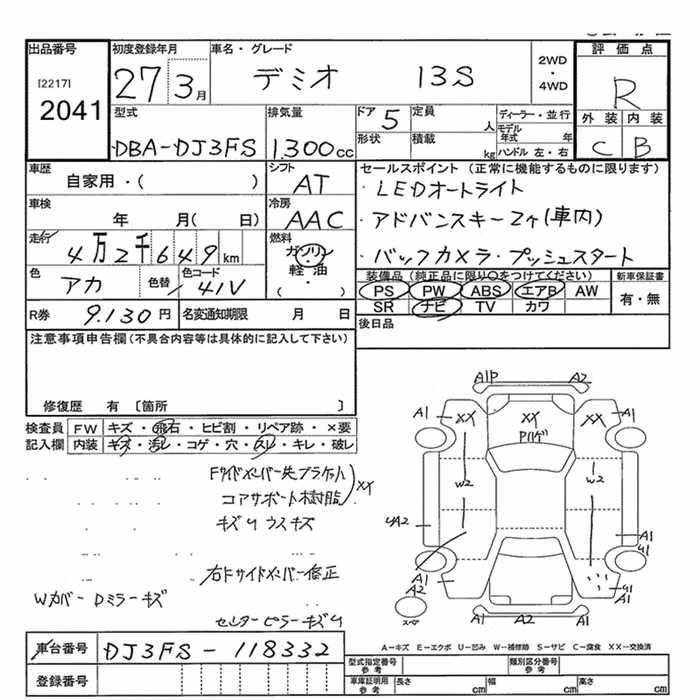 出品番号 初度登録年月 車名・グレード 2WD ・ 4WD 評価点
[2217]
2041
27 3月 デミオ 13S R
型式 排気量 ドア 5 定員 人 ディーラー・並行 外装 内装
DBA-DJ3FS 1.300cc 形状 積載 kg モデル年式 年 ハンドル 左・右 C B
車歴 シフト セールスポイント (正常に機能するものに限ります)
自家用・( ) AT ・LEDオートライト
車検 冷房
年 月( 日) AAC ・アドバンスキー2ヶ(車内)
走行 燃料
4万2千649km ガソリン ・バックカメラ・プッシュスタート
色 色替 色コード 軽油 装備品 (純正品に限り○をつけてください) 新車保証書
アカ / 41V ・ ( ) PS PW ABS エアB AW 有・無
SR ナビ TV カワ
R券 9.130円 名変通知期限 月 日 後日品
注意事項申告欄(不具合内容等は具体的に記入して下さい)
修復歴 有 〔箇所 〕
検査員 FW キズ・飛石・ヒビ割・リペア跡・×要
記入欄 内装 キズ・汚レ・コゲ・穴・スレ・キレ・破レ
Fサイドメンバー先ブラケット
コアサポート樹脂 XX
キズ4 ウスキズ
右FサイドメンバーE修正
Wカバー Dミラーキズ
センターピラーキズ4
A1P A2
A1 XX XX XX A1
Pハゲ
W2 W2
4A2 A1
A1 A2 A1 41
スペア A1 A2 A1 41
A-キズ E-エクボ U-凹み W-補修跡 S-サビ C-腐食 XX-交換済
車台番号 DJ3FS-118332
登録番号
型式指定番号 参考 類別区分番号 参考
車庫証明用 参考 長さ cm 幅 cm 高さ cm